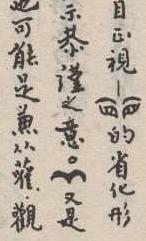 目正視—的省化形
示恭謹之意。又是
也可能是兼以雚觀